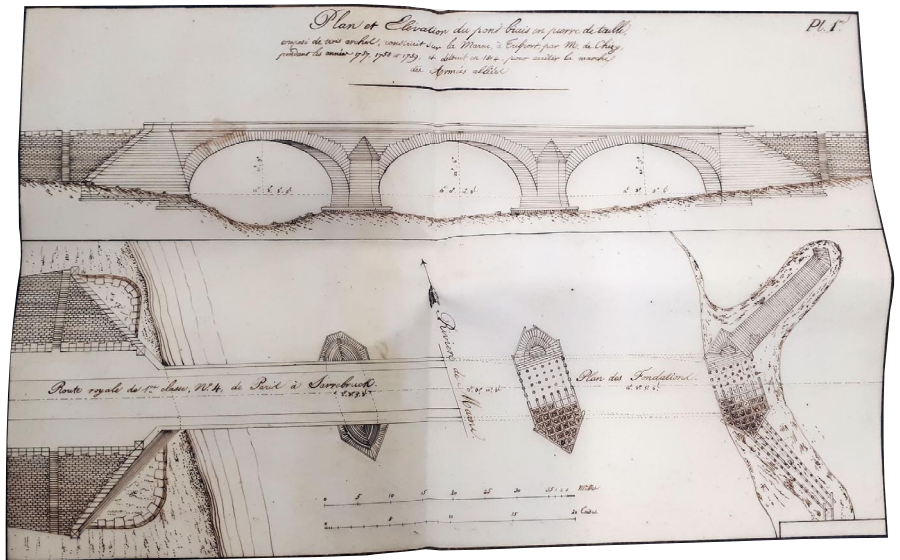 Plan et Elevation du pont biais en pierre de taille,
Pl. 1.
composé de trois arches, construit sur la Marne, à Trilport par Mr. de Chézy,
pendant les années 1757, 1758 et 1759, et détruit en 1814, pour arrêter la marche
des Armées alliées
Rivière de Marne
Route royale de 1ère classe, No. 4, de Paris à Sarrebruck
Plan des Fondations
5 10 15 20 25 30
Mètres
5 10 15 20
Toises